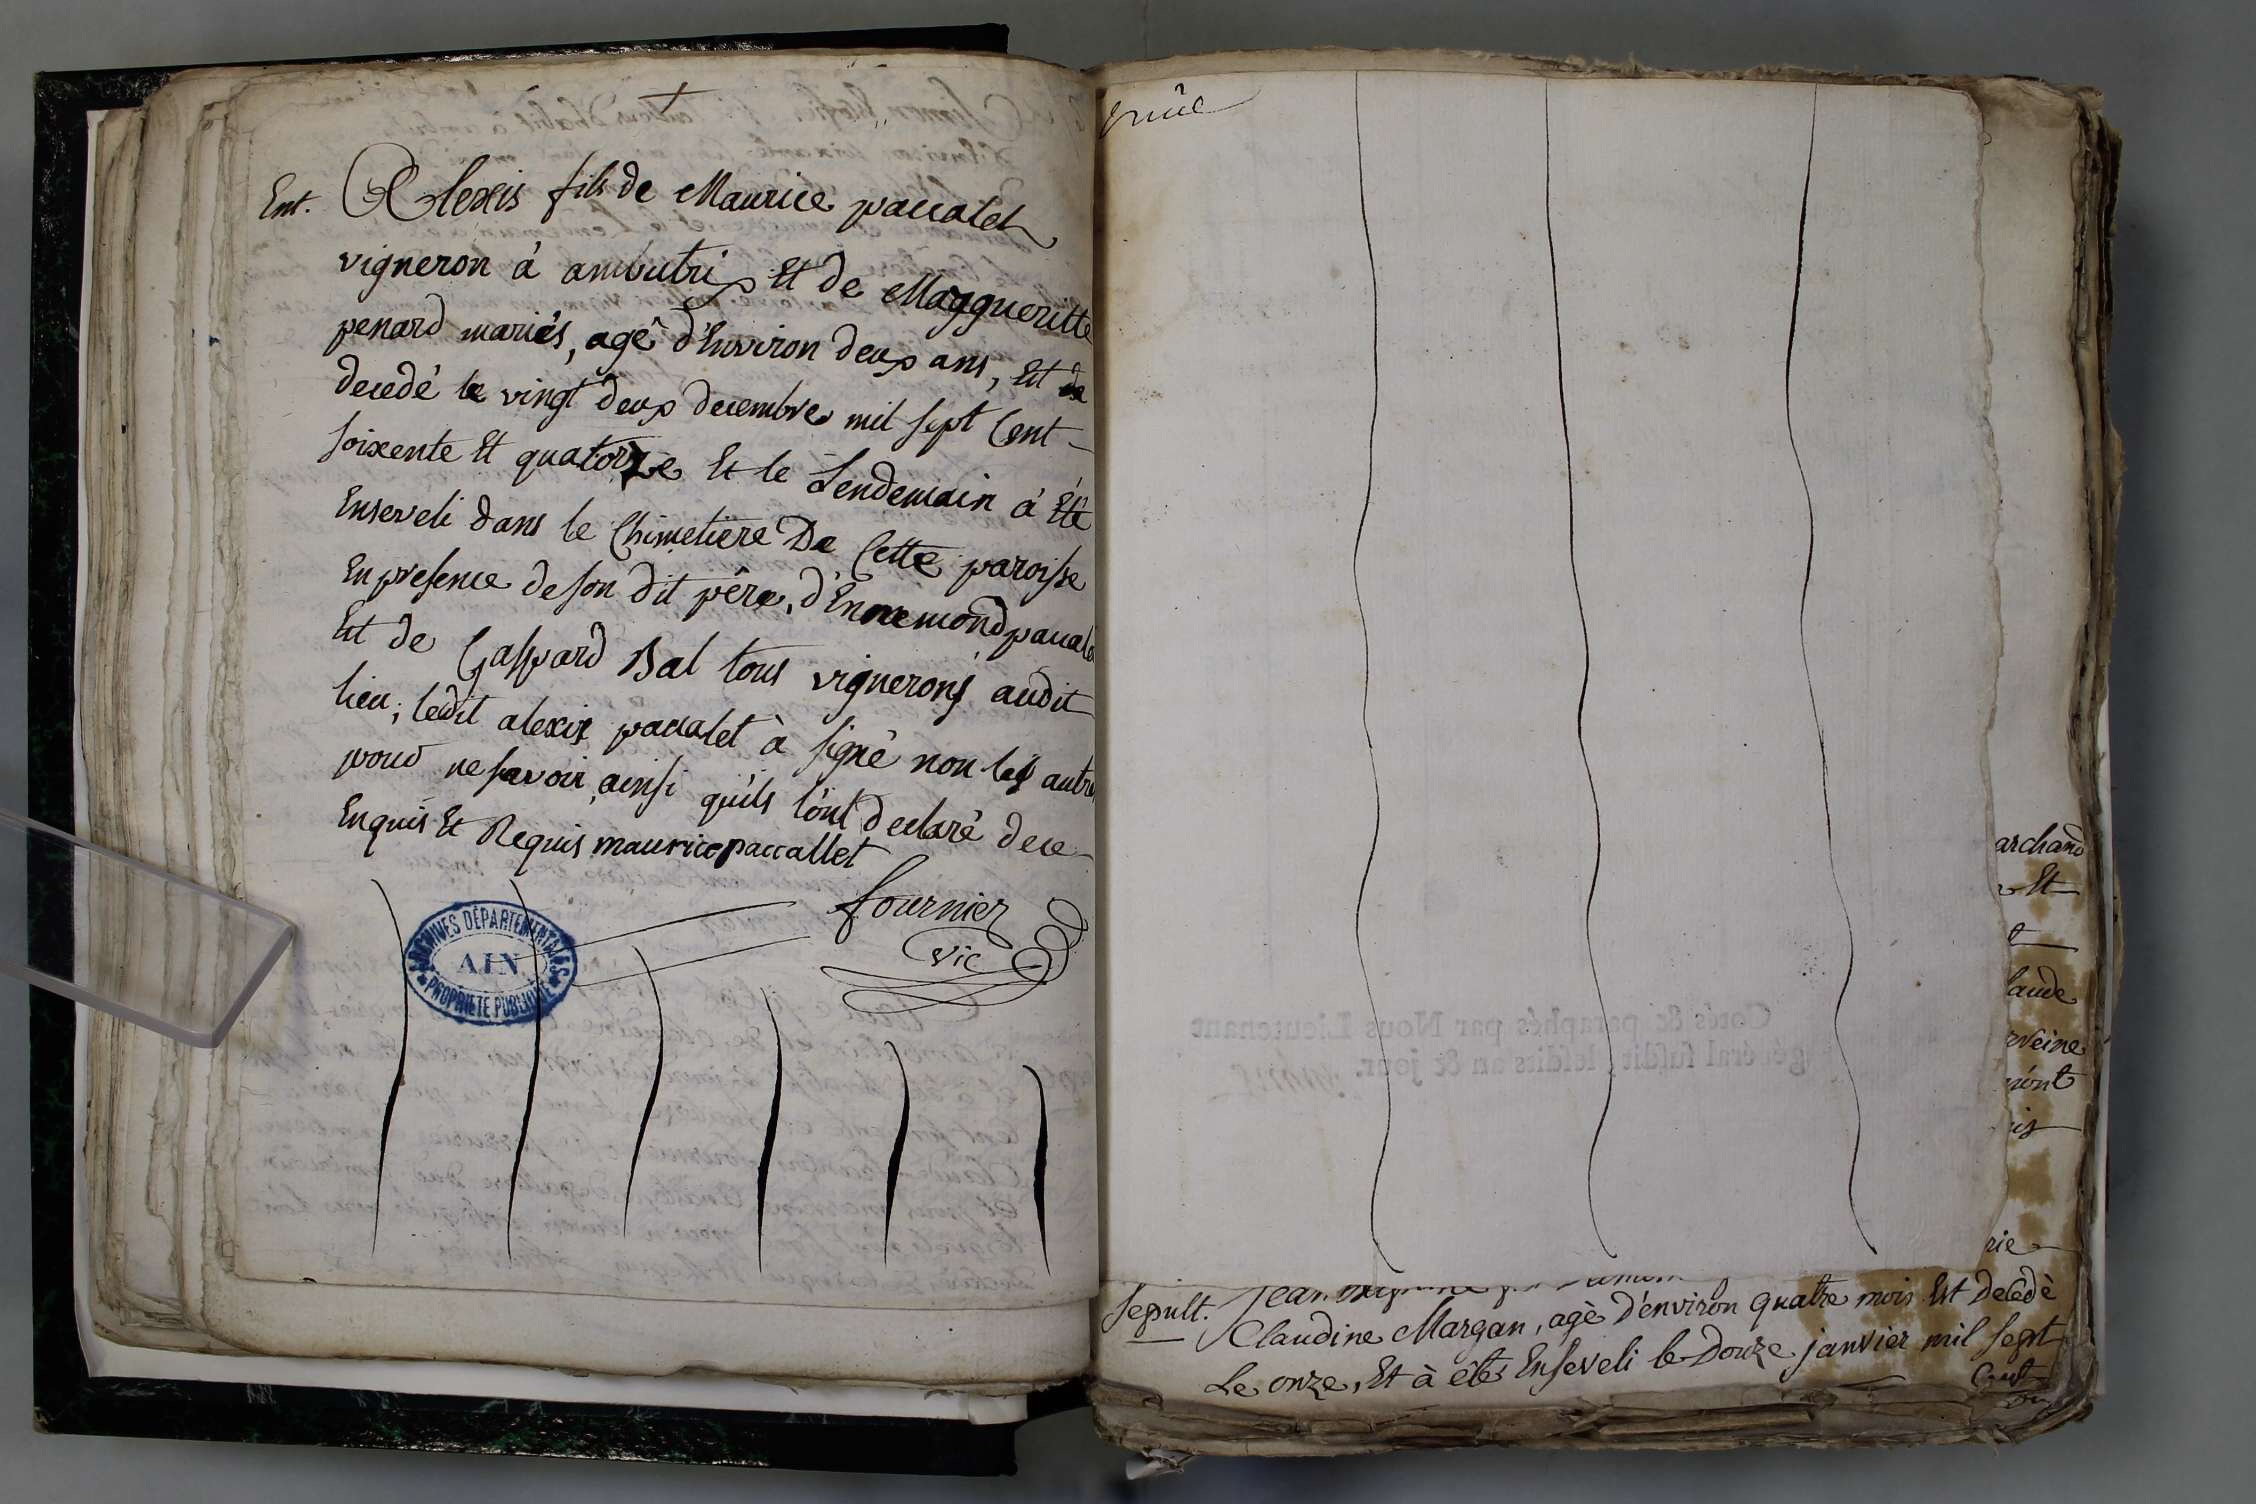 Ent. Alexis fils de Maurice paccalet
vigneron à ambutrix Et de Margueritte
penard mariés, agé d'Environ deux ans, Est
decedé le vingt deux decembre mil sept Cent
soixente Et quatorze Et le Lendemain à Eté
Enseveli dans le Chimetiere De Cette paroisse
En presence de son dit père, d'Ennemond paccalet
Et de Gaspard Bal tous vignerons audit
lieu; ledit alexis paccalet à signé non les autres
pour ne savoir, ainsi qu'ils l'ont declaré de ce
Enquis Et Requis maurice paccallet
fournier
vic
ARCHIVES DÉPARTEMENTALES
AIN
PROPRIÉTÉ PUBLIQUE
Cotés & paraphés par Nous Lieutenant
général susdit, lesdits an & jour.
archand
Et
laude
rveine
mont
is
rie
Sepult. Jean
Claudine Margan, agè d'environ quatre mois Est Decèdè
Le onze, Et à étés Enseveli le Douze janvier mil sept
Cent